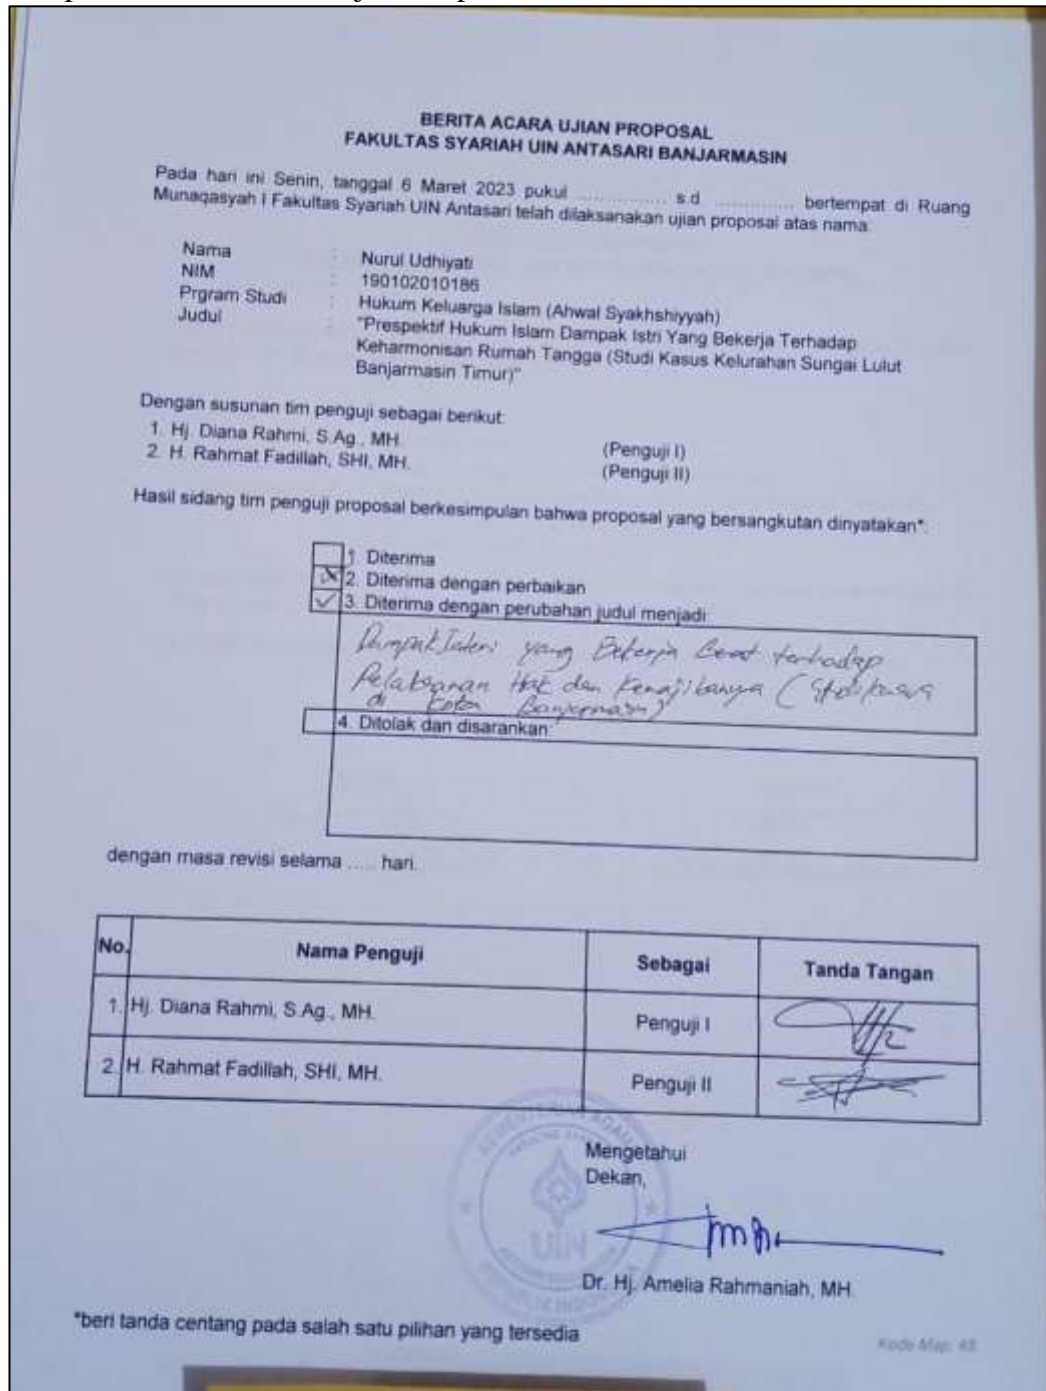 BERITA ACARA UJIAN PROPOSAL
FAKULTAS SYARIAH UIN ANTASARI BANJARMASIN
Pada hari ini Senin, tanggal 6 Maret 2023 pukul ................ s.d. .............. bertempat di Ruang
Munaqasyah I Fakultas Syariah UIN Antasari telah dilaksanakan ujian proposal atas nama:
Nama : Nurul Udhiyati
NIM : 190102010186
Prgram Studi : Hukum Keluarga Islam (Ahwal Syakhshiyyah)
Judul : "Prespektif Hukum Islam Dampak Istri Yang Bekerja Terhadap
Keharmonisan Rumah Tangga (Studi Kasus Kelurahan Sungai Lulut
Banjarmasin Timur)"
Dengan susunan tim penguji sebagai berikut:
1. Hj. Diana Rahmi, S.Ag., MH. (Penguji I)
2. H. Rahmat Fadillah, SHI, MH. (Penguji II)
Hasil sidang tim penguji proposal berkesimpulan bahwa proposal yang bersangkutan dinyatakan*:
1. Diterima
2. Diterima dengan perbaikan
3. Diterima dengan perubahan judul menjadi:
Dampak yang Bekerja Berat terhadap
Hak dan
di Kota Banjarmasin)
4. Ditolak dan disarankan:
dengan masa revisi selama ..... hari.
No. Nama Penguji Sebagai Tanda Tangan
1. Hj. Diana Rahmi, S.Ag., MH. Penguji I
2. H. Rahmat Fadillah, SHI, MH. Penguji II
Mengetahui
Dekan,
UIN
Dr. Hj. Amelia Rahmaniah, MH.
*beri tanda centang pada salah satu pilihan yang tersedia
Kode Map: